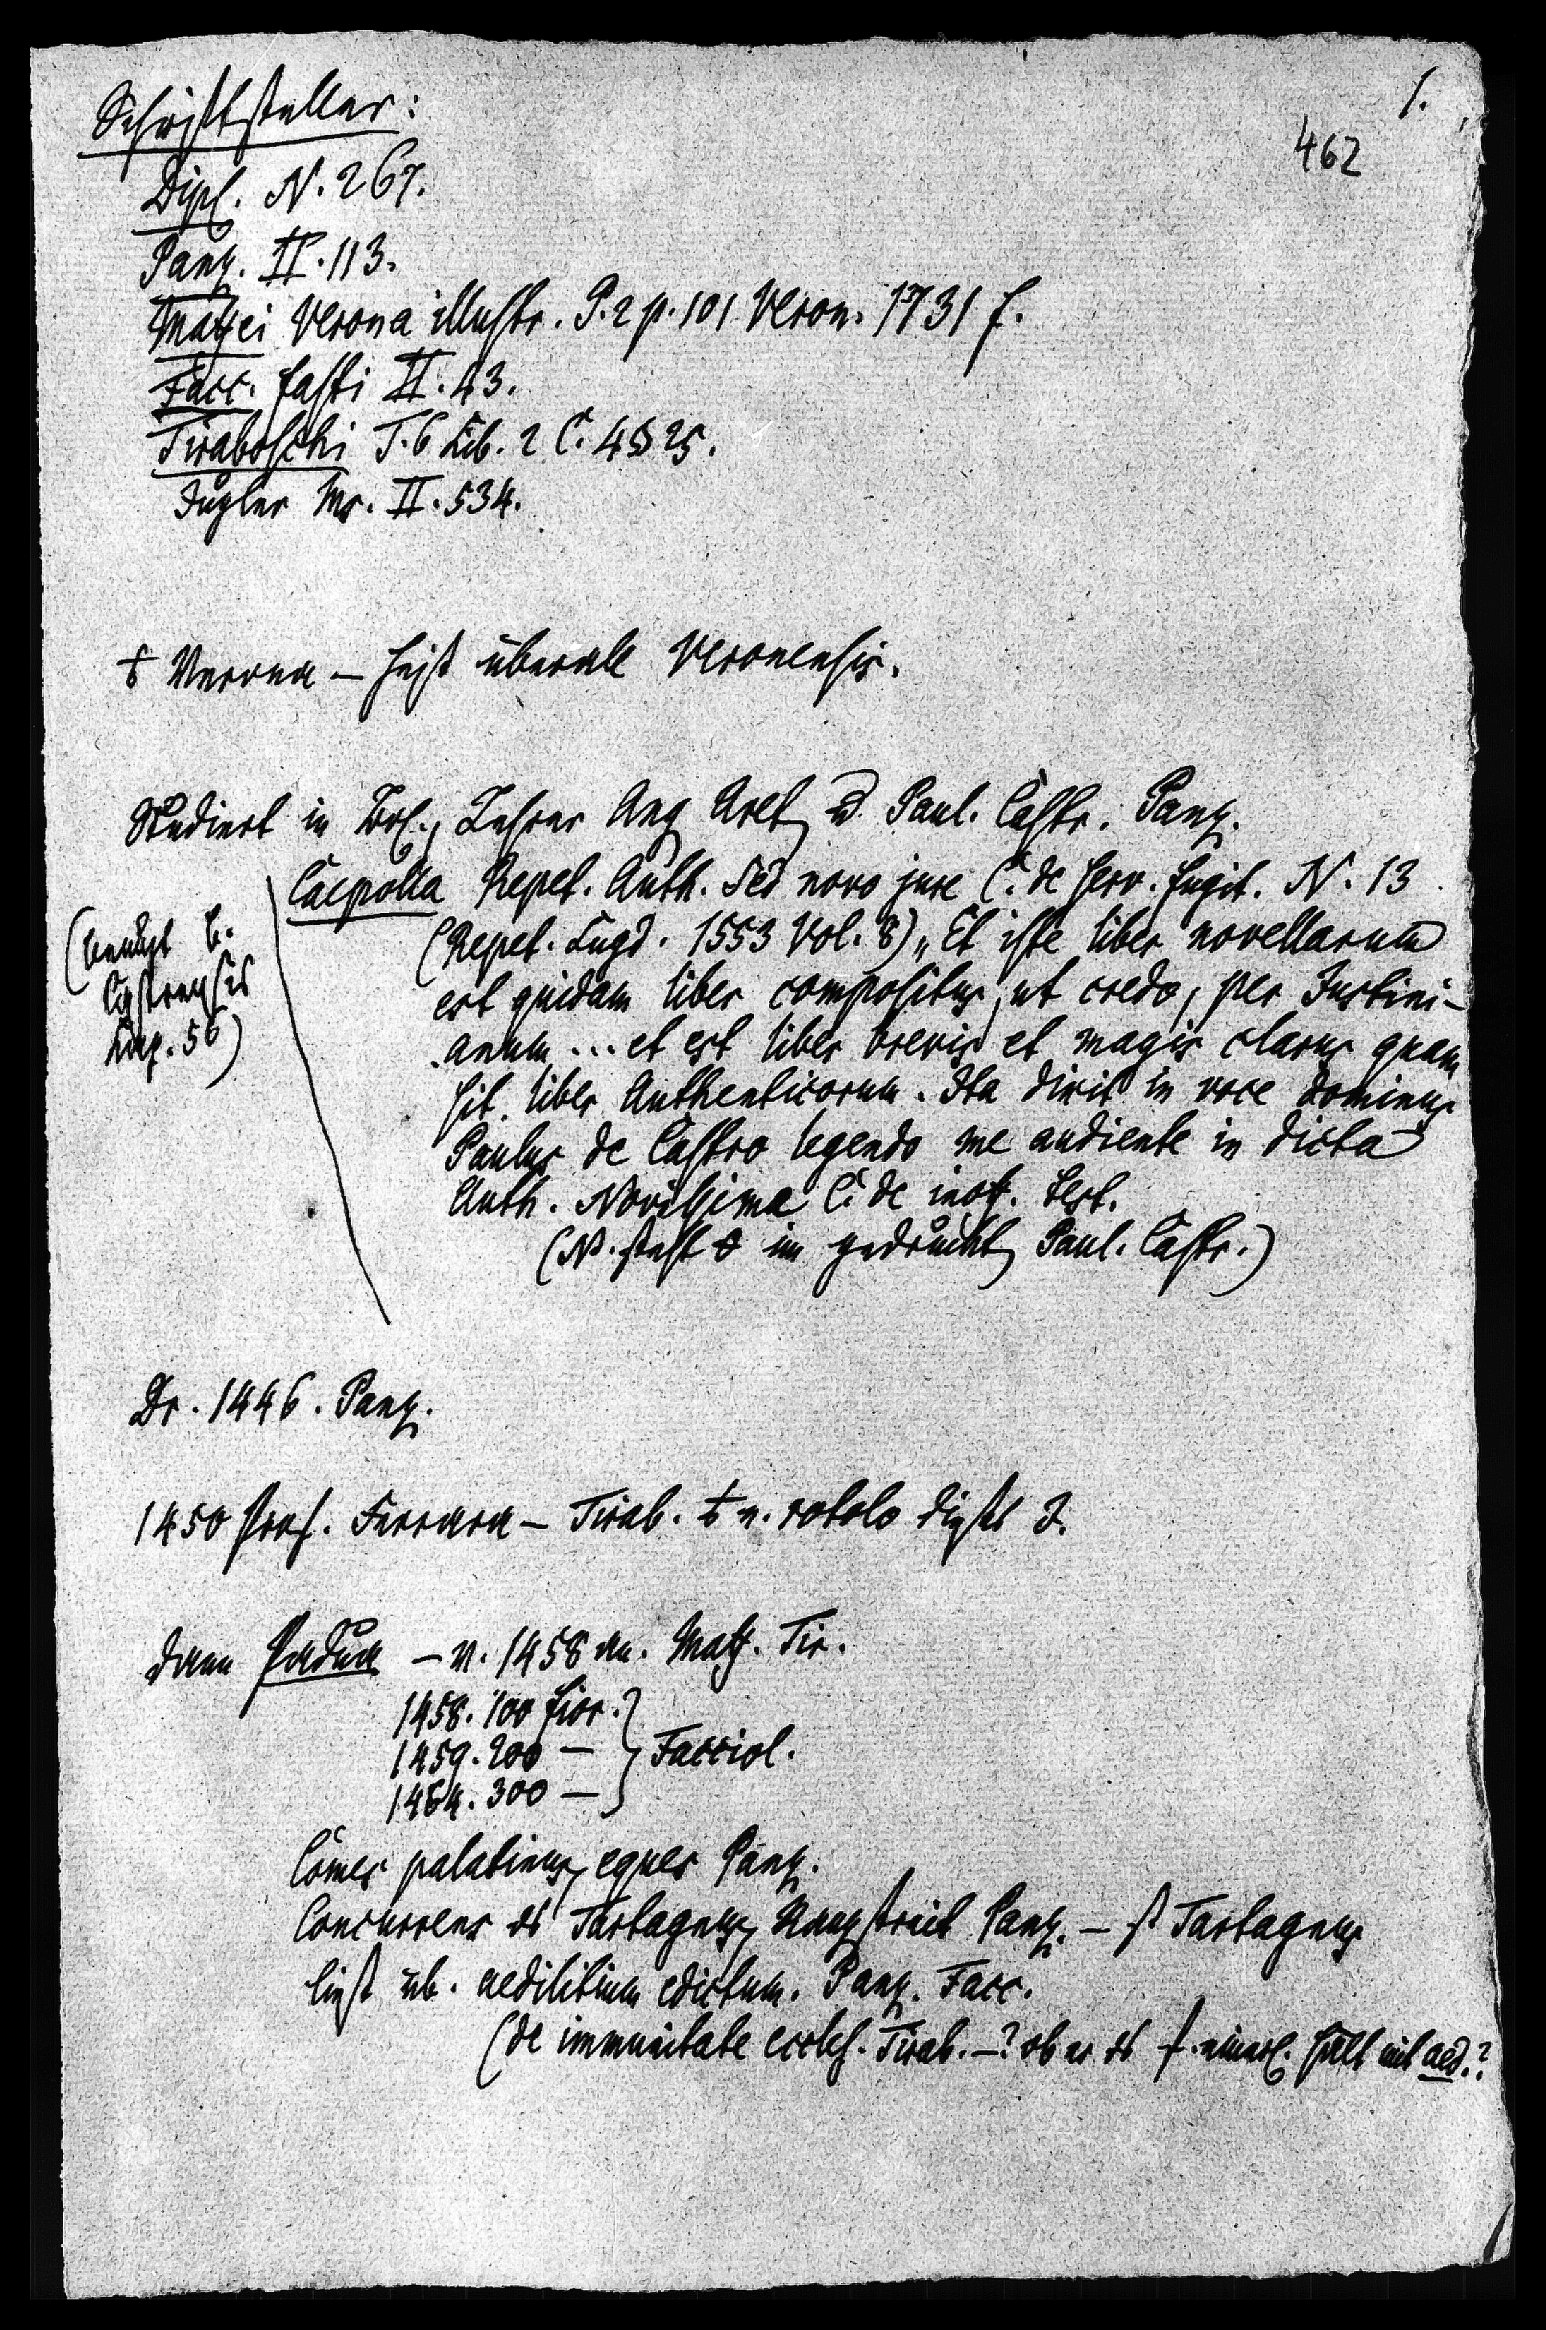 1.
462
Schriftsteller:
Dipl. N. 267.
Panz. II. 113.
Maffei Verona illustr. P. 2 p. 101 Veron. 1731 f.
Facc. fasti II. 43.
Tiraboschi T. 6 Lib. 2 C. 4 § 25.
Jugler Mf. II. 534.
Verona – heißt überall Veronensis.
Studiert in Lehrer Ang Aret u. Paul. Castr. Panz.
Caepolla Repet. Auth. Sed novo jure C. de serv. fugit. N. 13
(benutzt b.
Castrensis
56)
(Repet. Lugd. 1553 Vol. 8) „Et iste liber novellarum
est quidam liber compositus, ut credo, per Justini-
anum ... et est liber brevis et magis clarus quam
sit liber Authenticorum. Ita dixit in voce dominus
Paulus de Castro legendo me audiente in dicta
Auth. Novissima C. de inoff. test.
(N. steht im gedruckt Paul. Castr.)
Dr. 1446. Panz.
1450 Prof. Ferrara – Tirab. rotolo J.
dann Padua – n. 1458 an. Maff. Tir.
1458. 100 fior.
1459. 200 – Facciol.
1464. 300 –
Comes palatinus, eques Panz.
Concurrens Tartagnus, Panz. – Tartagnus
liest üb. aedilitium edictum. Panz. Facc.
(de immunitate eccles. Tirab. –? ob er hält mit aed.?